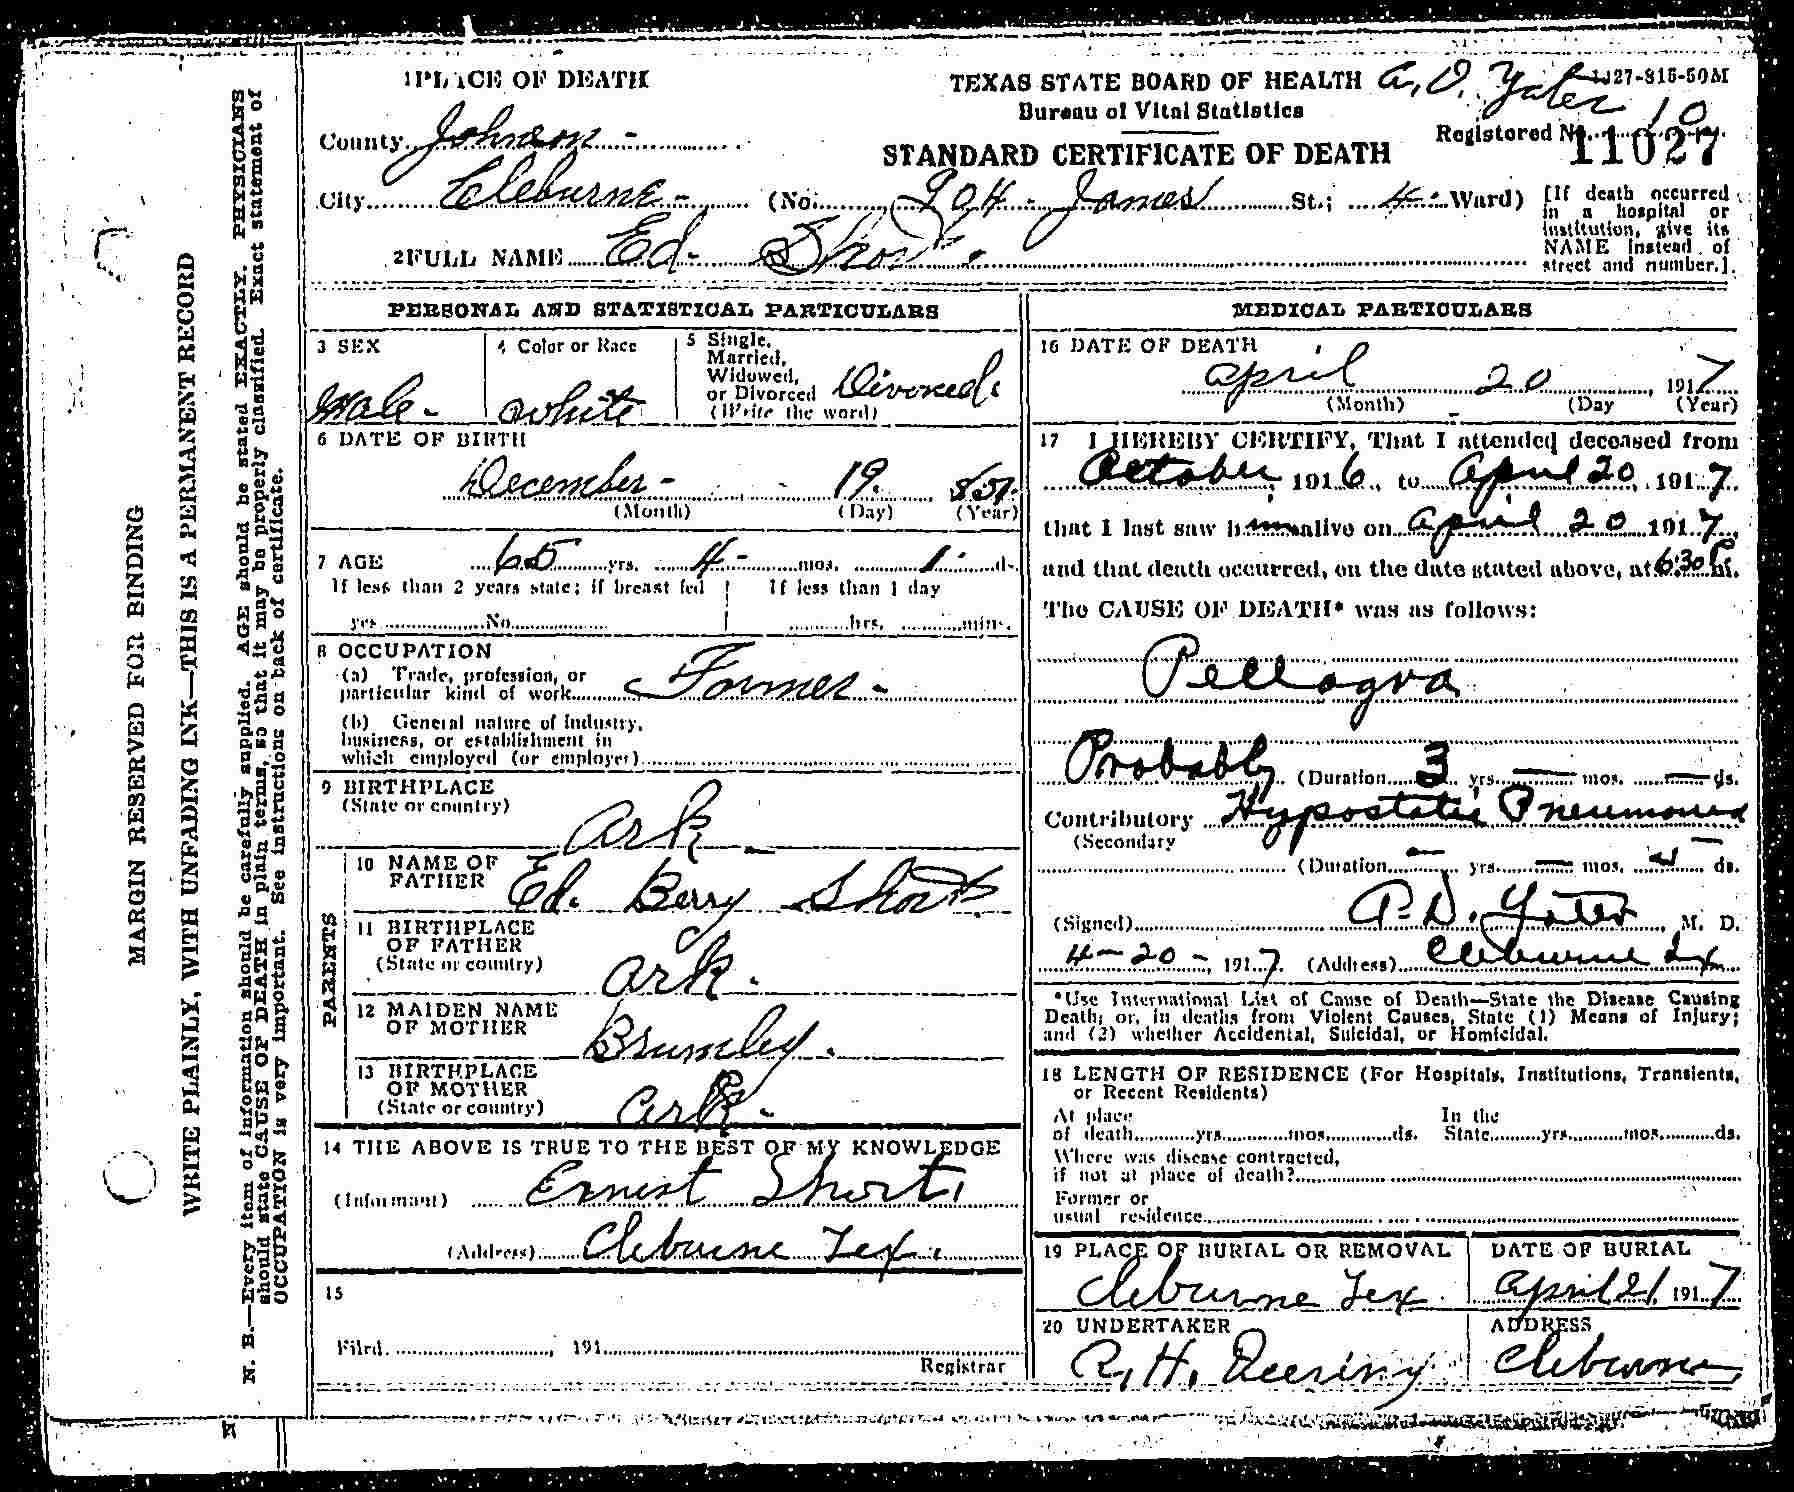 1 PLACE OF DEATH
TEXAS STATE BOARD OF HEALTH A. D. Yates 1J27-815-50M
Bureau of Vital Statistics
County Johnson - Registered No. 10
11027
STANDARD CERTIFICATE OF DEATH
City Cleburne - (No. 904 - James St.; 4 - Ward)
[If death occurred
in a hospital or
institution, give its
NAME instead of
street and number.]
2 FULL NAME Ed. Short.
PERSONAL AND STATISTICAL PARTICULARS
3 SEX
Male -
4 Color or Race
White
5 Single,
Married,
Widowed,
or Divorced Divorced.
(Write the word)
6 DATE OF BIRTH
December - 19.
(Month) (Day) (Year)
7 AGE 65 yrs. 4 - mos. 1 - ds.
If less than 2 years state; if breast fed
yes No
If less than 1 day
hrs. mins.
8 OCCUPATION
(a) Trade, profession, or
particular kind of work Farmer -
(b) General nature of Industry,
business, or establishment in
which employed (or employer)
9 BIRTHPLACE
(State or country)
Ark -
PARENTS
10 NAME OF
FATHER Ed. Berry Short
11 BIRTHPLACE
OF FATHER
(State or country) Ark.
12 MAIDEN NAME
OF MOTHER Brumley.
13 BIRTHPLACE
OF MOTHER
(State or country) Ark -
14 THE ABOVE IS TRUE TO THE BEST OF MY KNOWLEDGE
(Informant) Ernest Short.
(Address) Cleburne Tex.
15
Filed , 191
Registrar
MEDICAL PARTICULARS
16 DATE OF DEATH
April 20 1917
(Month) (Day (Year)
17 I HEREBY CERTIFY, That I attended deceased from
October, 1916, to April 20, 1917,
that I last saw him alive on April 20 1917,
and that death occurred, on the date stated above, at 6:30 P. M.
The CAUSE OF DEATH* was as follows:
Pellagra
Probably (Duration 3 yrs. — mos. — ds.
Contributory Hypostatic Pneumonia
(Secondary
(Duration — yrs. — mos. ds.
(Signed) A. D. Yates, M. D.
4-20-, 1917. (Address) Cleburne Tx
*Use International List of Cause of Death—State the Disease Causing
Death; or, in deaths from Violent Causes, State (1) Means of Injury;
and (2) whether Accidental, Suicidal, or Homicidal.
18 LENGTH OF RESIDENCE (For Hospitals, Institutions, Transients,
or Recent Residents)
At place In the
of death yrs. mos. ds. State yrs. mos. ds.
Where was disease contracted,
if not at place of death?
Former or
usual residence
19 PLACE OF BURIAL OR REMOVAL
Cleburne Tex
DATE OF BURIAL
April 21 1917
20 UNDERTAKER
R. H. Deering
ADDRESS
Cleburne
MARGIN RESERVED FOR BINDING
WRITE PLAINLY, WITH UNFADING INK—THIS IS A PERMANENT RECORD
N. B.—Every item of information should be carefully supplied. AGE should be stated EXACTLY. PHYSICIANS
should state CAUSE OF DEATH in plain terms, so that it may be properly classified. Exact statement of
OCCUPATION is very important. See instructions on back of certificate.